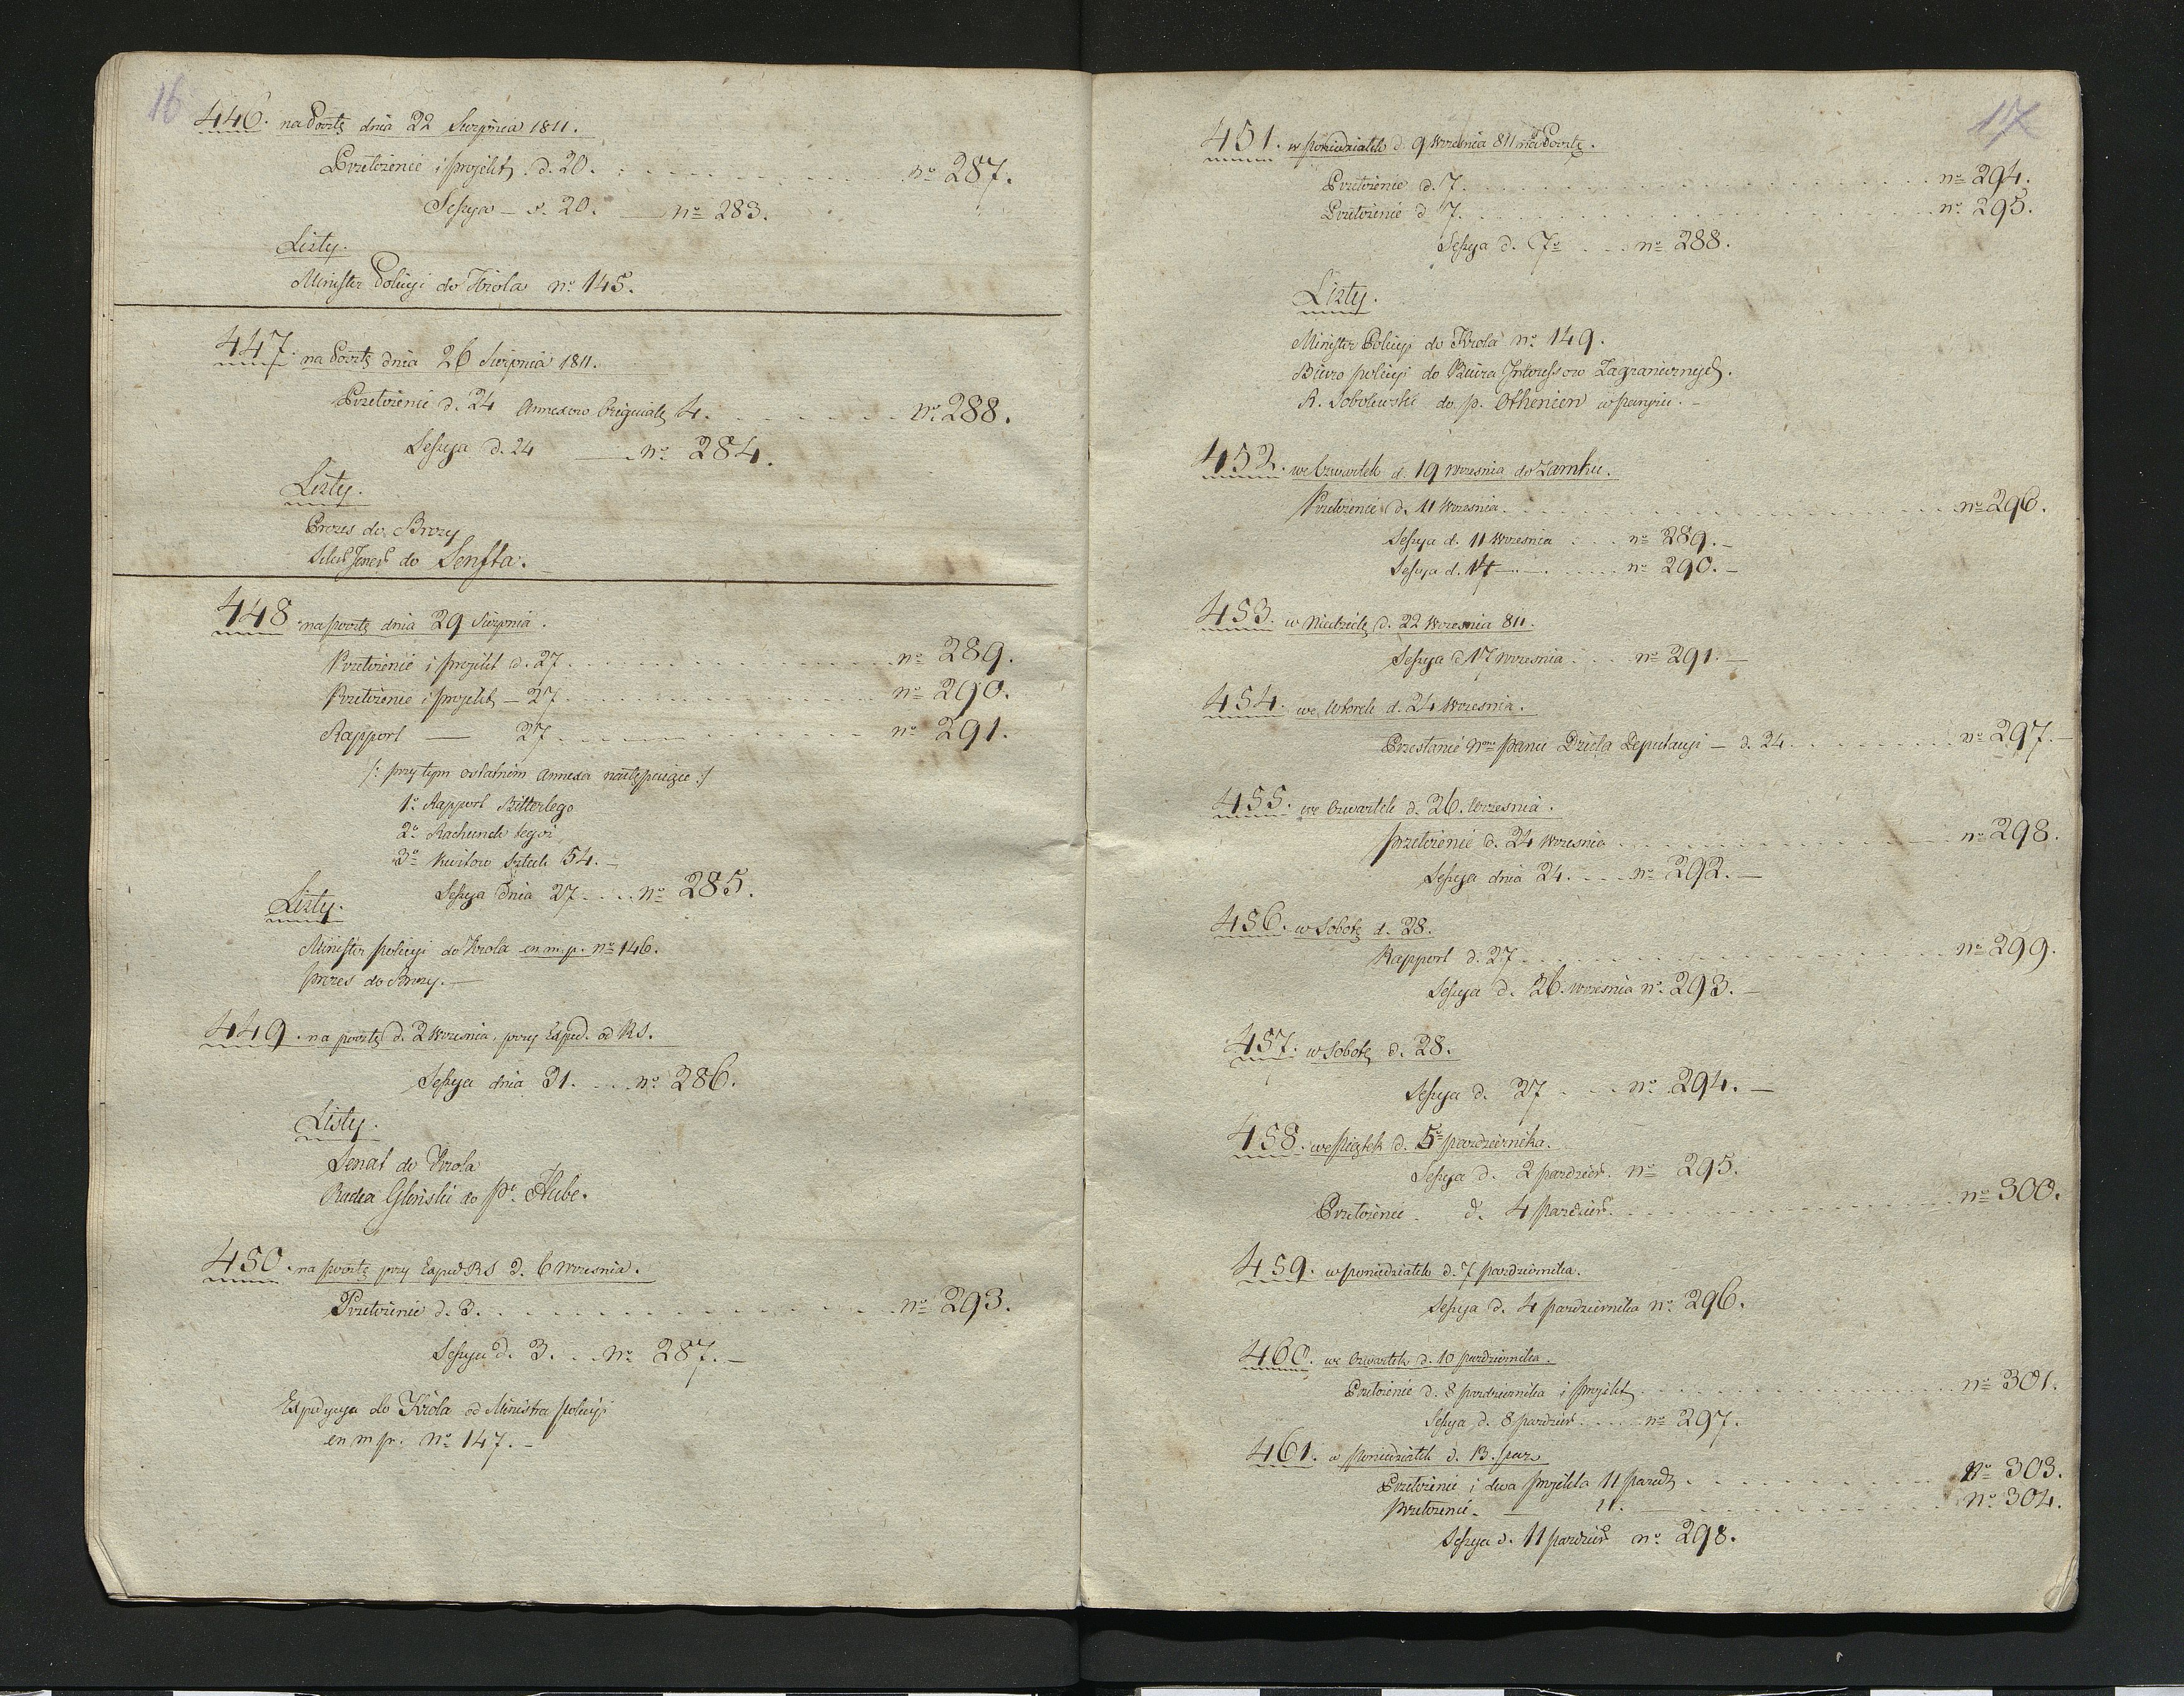 16
446. na Pocztę dnia 22 Sierpnia 1811.
Przełożenie i projekt d. 20. no 287.
Sessya - d. 20. — no 283.
Listy.
Minister Policyi do Króla no 145.
447. na Pocztę dnia 26 Sierpnia 1811.
Przełożenie d. 24 Annexow Originały 4. no 288.
Sessya d. 24 — no 284.
Listy.
Prezes do Brezy
Sekr Jener do Senfta.
448. na pocztę dnia 29 Sierpnia.
Przełożenie i projekt d. 27. no 289.
Przełożenie i projekt — 27. no 290.
Rapport — 27. no 291.
/: przy tym ostatnim annexa następuiące :/
1o Rapport Bitterlego
2o Rachunek tegoż
3o Kwitow sztuk 54. —
Sessya dnia 27. no 285.
Listy.
Minister policyi do Krola en m. p. no 146.
Prezes do Brezy. —
449. na pocztę d. 2 Wrzesnia, przy Exped. od RS.
Sessya dnia 31. no 286.
Listy.
Senat do Krola
Radca Gliński do Pa Hube.
450. na pocztę przy Exped RS d. 6 Wrzesnia.
Przełożenie d. 3. no 293.
Sessya d. 3. no 287. —
Expedycya do Króla od Ministra policyi
en m p. no 147. —
17
451. w poniedziałek d. 9 Wrzesnia 811 na Pocztę.
Przełożenie d. 7. no 294.
Przełożenie d 7. no 295.
Sessya d. 7o no 288.
Listy.
Minister Policyi do Krola no 149.
Biuro policyi do Biura Interessow Zagranicznych.
R. Sobolewski do p. Othenien w paryżu. —
452. we Czwartek d. 19 Wrzesnia do Zamku.
Przełożenie d. 11 Wrzesnia. no 296.
Sessya d. 11 Wrzesnia no 289. —
Sessya d. 14 — no 290. —
453. w Niedzielę d. 22 Wrzesnia 811.
Sessya d 17 Wrzesnia no 291. —
454. we Wtorek d. 24 Wrzesnia.
Przesłanie Deputacyi — d. 24. no 297. —
455. we Czwartek d. 26. Wrzesnia.
Przełożenie d. 24 Wrzesnia no 298.
Sessya dnia 24. no 292. —
456. w Sobotę d. 28.
Rapport d. 27. no 299.
Sessya d. 26. Wrzesnia no 293. —
457. w Sobotę d. 28.
Sessya d. 27 no 294. —
458. we Piątek d. 5o pazdziernika.
Sessya d. 2 pazdzier. no 295.
Przełożenie d. 4 pazdzier. no 300.
459. w poniedziałek d. 7 pazdziernika.
Sessya d. 4 pazdziernika no 296.
460. we Czwartek d. 10 pazdziernika.
Przełożenie d. 8 pazdziernika i projekt no 301.
Sessya d. 8 pazdzier no 297.
461. w poniedziałek d. 13. paz
Przełożenie i dwa projekta 11 pazdz no 303.
Przełożenie — 11. no 304.
Sessya d. 11 pazdzier no 298.